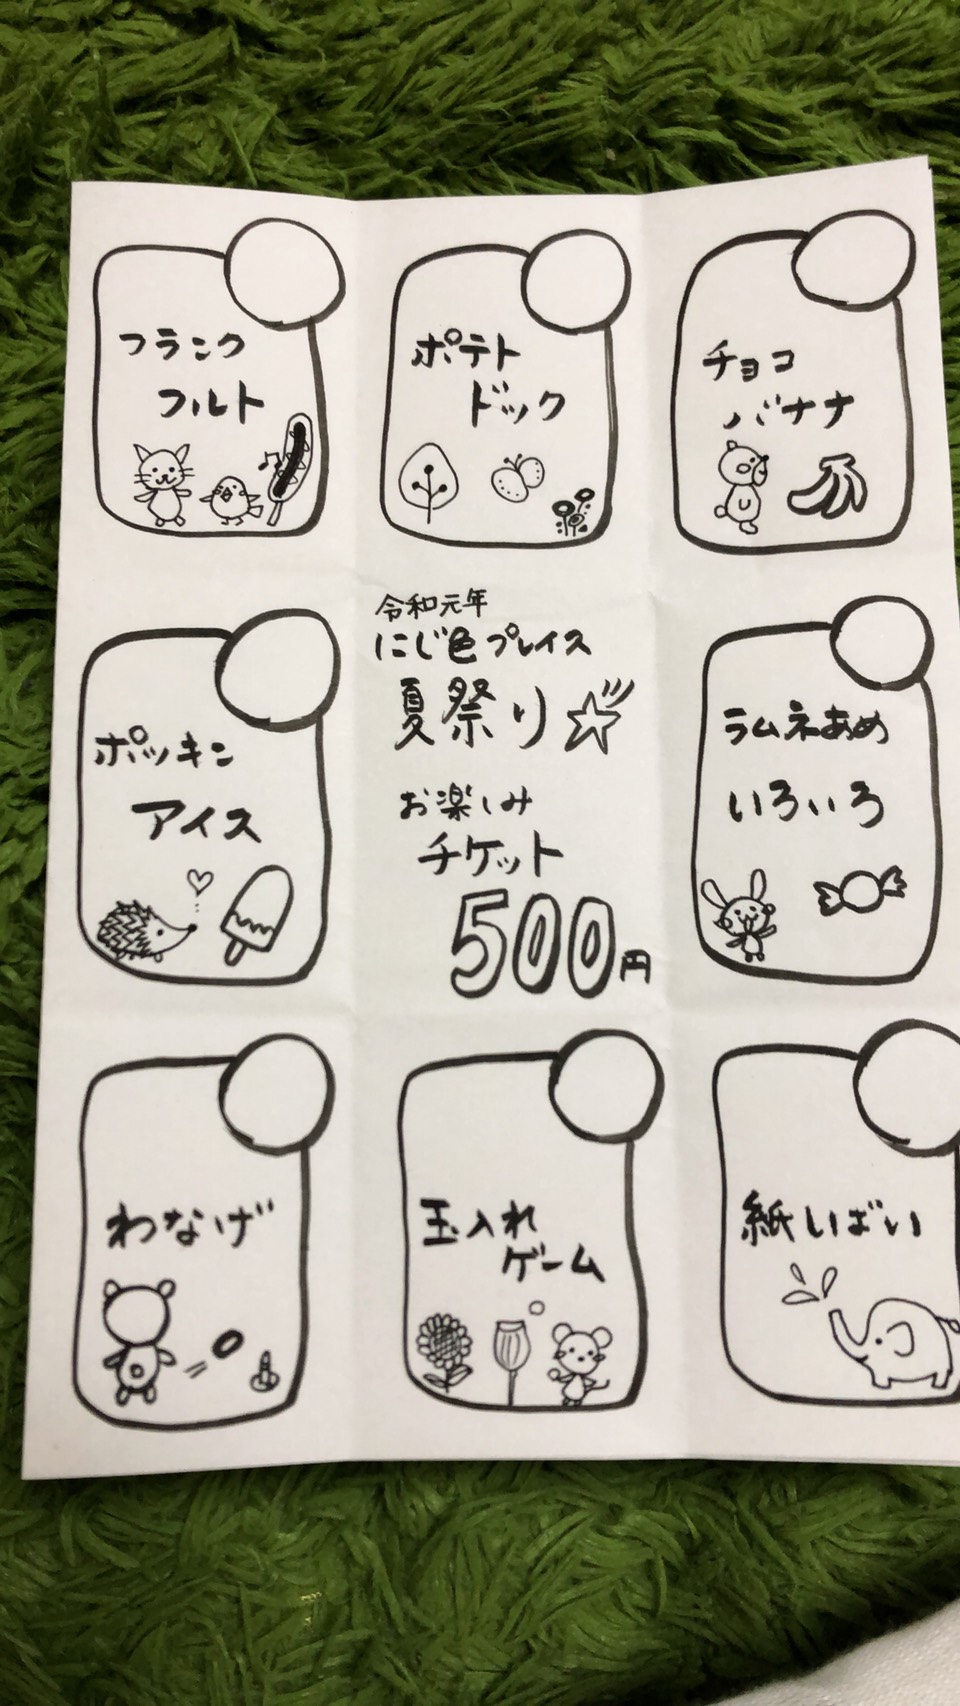 フランク
フルト
ポテト
ドック
チョコ
バナナ
ポッキン
アイス
令和元年
にじ色プレイス
夏祭り
お楽しみ
チケット
500円
ラムネあめ
いろいろ
わなげ
玉入れ
ゲーム
紙しばい